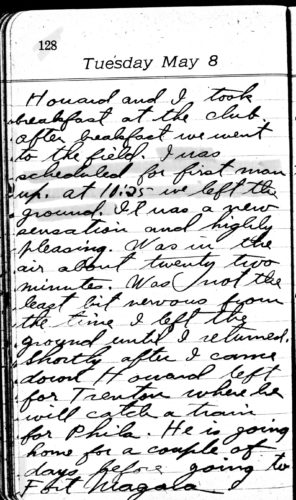 128
Tuesday May 8
Howard and I took
breakfast at the club.
after breakfast we went
to the field. I was
scheduled for first man
up. at 10:25 we left the
ground. It was a new
sensation and highly
pleasing. Was in the
air about twenty two
minutes. Was not the
least bit nervous from
the time I left the
ground until I returned.
Shortly after I came
down Howard left
for Trenton where he
will catch a train
for Phila. He is going
home for a couple of
days before going to
Fort Niagara